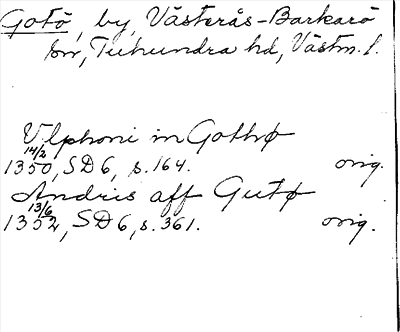 Gotö, by, Västerås-Barkarö
sn, Tuhundra hd, Västm. l.
Vlphoni in Gothø
14/2
1350, SD 6, s. 164. orig.
Andris aff Gutø
13/6
1352, SD 6, s. 361. orig.